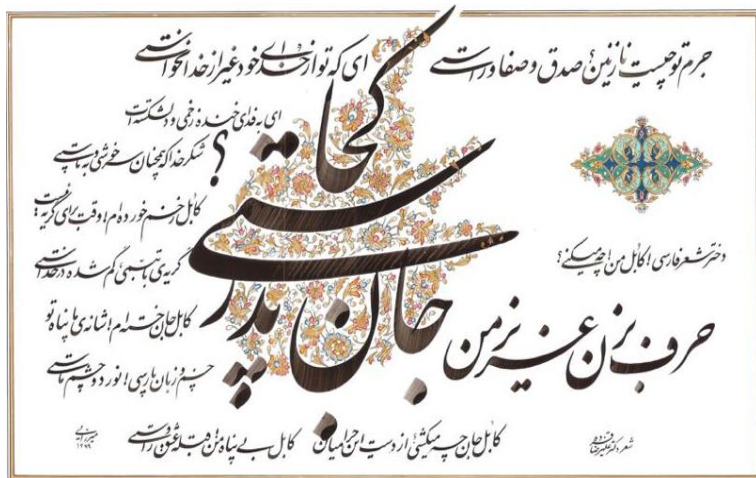 جرم تو چیست نازنین؟ صدق و صفا و راستی
ای که تو از خدای خود غیر از خدا نخواستی
ای به فدای خنده زخمی و دلشکسته‌ات
شکر خدا که همچنان سرخوشی و به پاستی
کابل زخم خورده‌ام! وقت برای گریه نیست
گریه‌ی ما تبسمی گم شده در خداستی
کابل جان خسته‌ام! شانه‌ی ما پناه تو
چشم و زبان پارسی! نور دو چشم ماستی
دختر شعر فارسی! کابل من! چه میکنی؟
حرف بزن عزیز من
جان پدر کجاستی؟
کابل جان چه میکشی؟ از دست این حرامیان
کابل بی پناه من! قبله عشق راستی
شعر دکتر علیرضا قزوه
۱۳۹۹